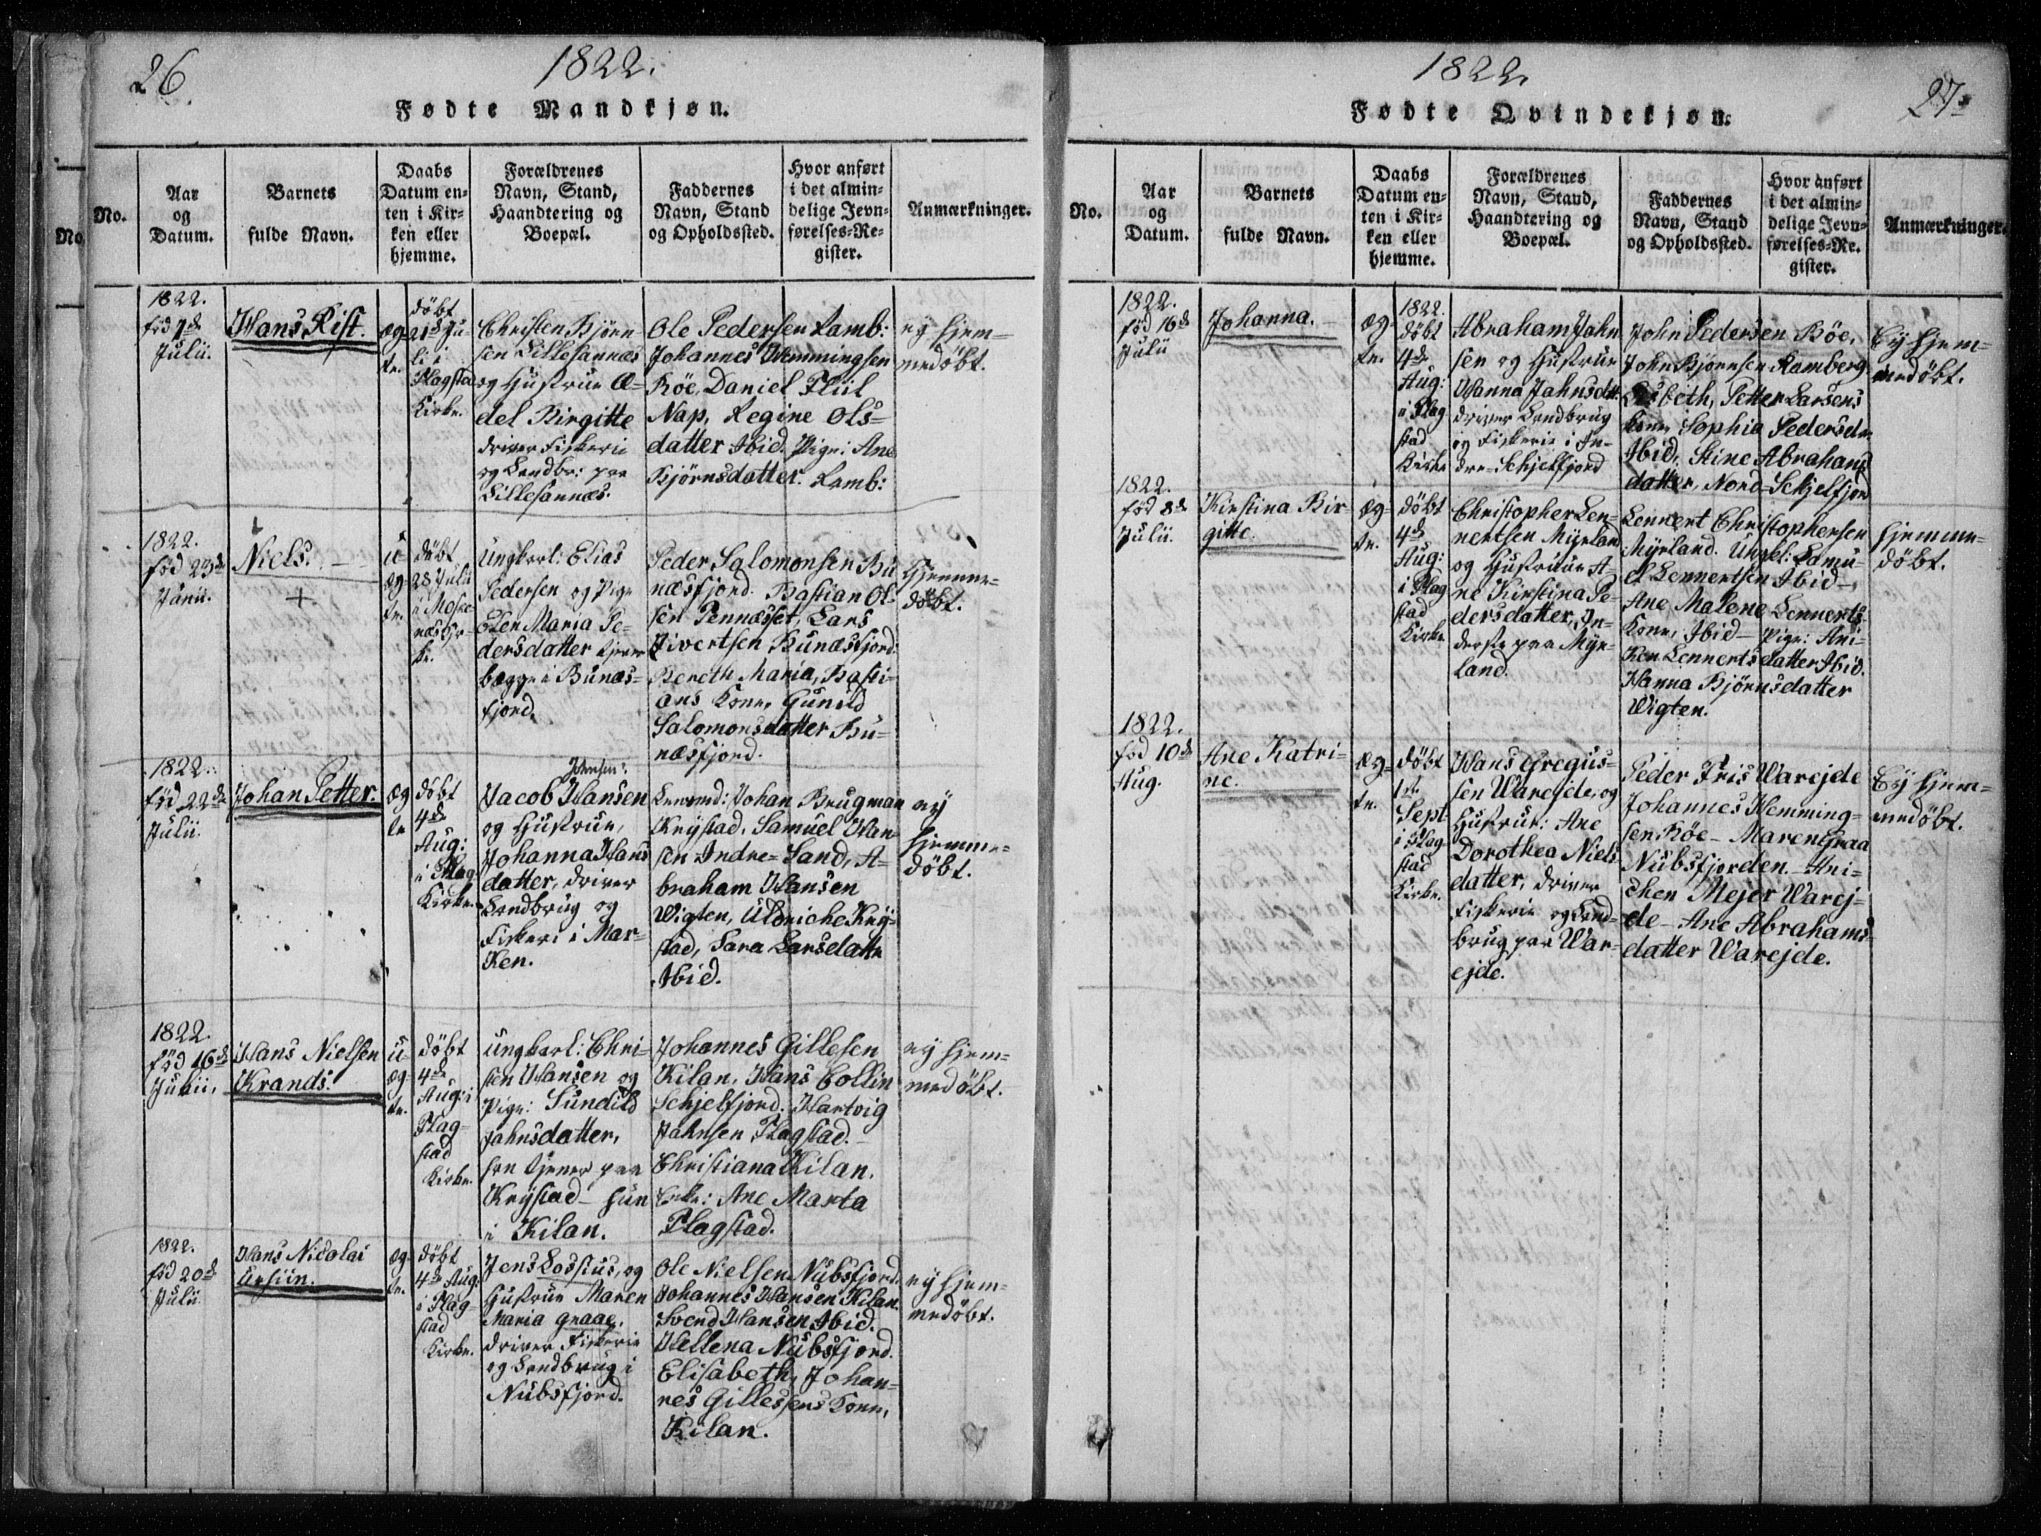 26.
1822.
Fødte Mandkjøn.
No.
Aar
og
Datum.
Barnets
fulde Navn.
Daabs
Datum en-
ten i Kir-
ken eller
hjemme.
Forældrenes
Navn, Stand,
Haandtering og
Boepæl.
Faddernes
Navn, Stand
og Opholdssted.
Hvor anført
i det almin-
delige Jevn-
førelses-Re-
gister.
Anmærkninger.
1822.
född
Julii.
Hans Rist.
æg-
te.
döbt
21de Ju-
lii i
Flagstad
Kirke.
Christen Björn
sen Lillesannæs
og Hustrue A-
del Birgitte
driver Fiskerie
og Landbr: paa
Lillesannæs.
Ole Pedersen Ramb:
Johannes Hemmingsen
Böe, Daniel Fliil
Nap, Regine Ols-
datter Ibid. Pige: Ane
Bjørnsdatter. Ramb:
ey hjem-
medöbt.
1822.
föd 23de
Junii.
Niels.
+
u
æg-
te.
döbt
28 Julii
i Moske
næs Kir-
ke.
Ungkarl: Elias
Pedersen og Pige
Elen Maria Pe-
dersdatter tjener
begge i Bunæs-
fjord.
Peder Salomonsen Bu
næsfjord. Bastian Ol-
sen Tennæsset, Lars
Sivertsen Bunæsfjord:
Bereth Maria, Basti-
ans Kone, Gunild
Salomonsdatter Bu-
næsfjord.
Hjemme-
döbt.
1822.
föd 22de
Julii.
Johan Petter.
æg
te
döbt
4de
Aug:
i Flag
Kirke.
Jensen:
Jacob Hansen
og Hustrue,
Johanna Hans
datter, driver
Landbrug og
Fiskeri i Mar-
ken.
Johan Brugman
Krÿstad, Samuel Han-
sen Indre-Sand, A-
braham Hansen
Wigten, Ulriche Krÿ-
stad, Sara Larsdatte
Ibid.
ey
hjemme-
döbt.
1822.
föd 16de
Julii.
Hans Nielsen
Krands.
u-
æg-
te.
döbt
4de
Aug: i
Flag-
stad
Kirke.
Ungkarl: Chri-
sten Hansen og
Pige: Sundild
Jahnsdatter,
han tjener paa
Krÿstad - hun
i Kilan.
Johannes Gillesen
Kilan. Hans Collin
Schjelfjord. Hartvig
Jahnsen Flagstad.-
Christiana Kilan.
Enke: Ane Marta
Flagstad.
ey hjem-
medöbt.
1822.
föd 20de
Julii
Hans Nicolai
Ursiin.
æg-
te.
döbt
4de Aug:
i Flag-
stad
Kirke.
Jens Lossius, og
Hustrue Maren
Maria Graae,
driver Fiskerie
og Landbrug i
Nubsfjord.
Ole Nielsen Nubsfjord.
Johannes Hansen Kilan.
Svend Hansen Ibid.
Hellena Nubsfjord.
Elisabeth, Johan-
nes Gillessens Kone,
Kilan.
ey hjem-
medöbt.
1822.
27.
Fødte Qvindekjøn.
No.
Aar
og
Datum.
Barnets
fulde Navn.
Daabs
Datum en-
ten i Kir-
ken eller
hjemme.
Forældrenes
Navn, Stand,
Haandtering og
Boepæl.
Faddernes
Navn, Stand
og Opholdssted.
Hvor anført
i det almin-
delige Jevn-
førelses-Re-
gister.
Anmærkninger.
1822.
föd 16de
Julii
Johanna.
æg-
te.
1822.
döbt
4de
Aug:
i Flag
stad
Kirke
Abraham Jahn
sen og Hustrue
Hanna Jahnsdtt.
driver Landbrug
og Fiskerie i In-
dre-Schjelfjord
John Pedersen Böe,
John Bjørnsen Ramberg
Lisbeth, Petter Larsens
Kone, Sophia Pedersda-
Ibid, Stine Abrahams
datter, Nord-Schjelfjor
Ey hjem-
medöbt.
1822.
föd 8de
Julii.
Kirstina Bir
gitte.
æg-
te.
döbt
4de
Aug:
i Flag
stad
Kirke
Christopher Len-
nertsen Mÿrlan
og Hustrue A-
ne Kirstina Pe-
dersdatter, In-
derste paa Mÿr-
land.
Lennert Christophersen
Mÿrland. Ungk: Samu-
el Lennertsen Ibid-
Ane Malene Lennerts
Kone, Ibid- Pige: Ani-
ken Lennertsdatter Ibid.
Hanna Bjørnsdatter
Wigten.
Hjemme-
döbt.
1822.
föd 10de
Aug.
Ane Katri-
ne.
æg-
te.
döbt
1te
Sept
i Flag
stad
Kirke.
Hans Gregus-
sen Warejde, og
Hustrue: Ane
Dorothea Niels
datter, driver
Fiskerie og Land-
brug paa War-
ejde.
Peder Friis Warejde
Johannes Hemming-
sen Böe- Maren Graa
Nubsfjorden. Ani-
chen Mejer Warej-
de- Ane Abrahams
datter Warejde.
Ey hjem-
medöbt.